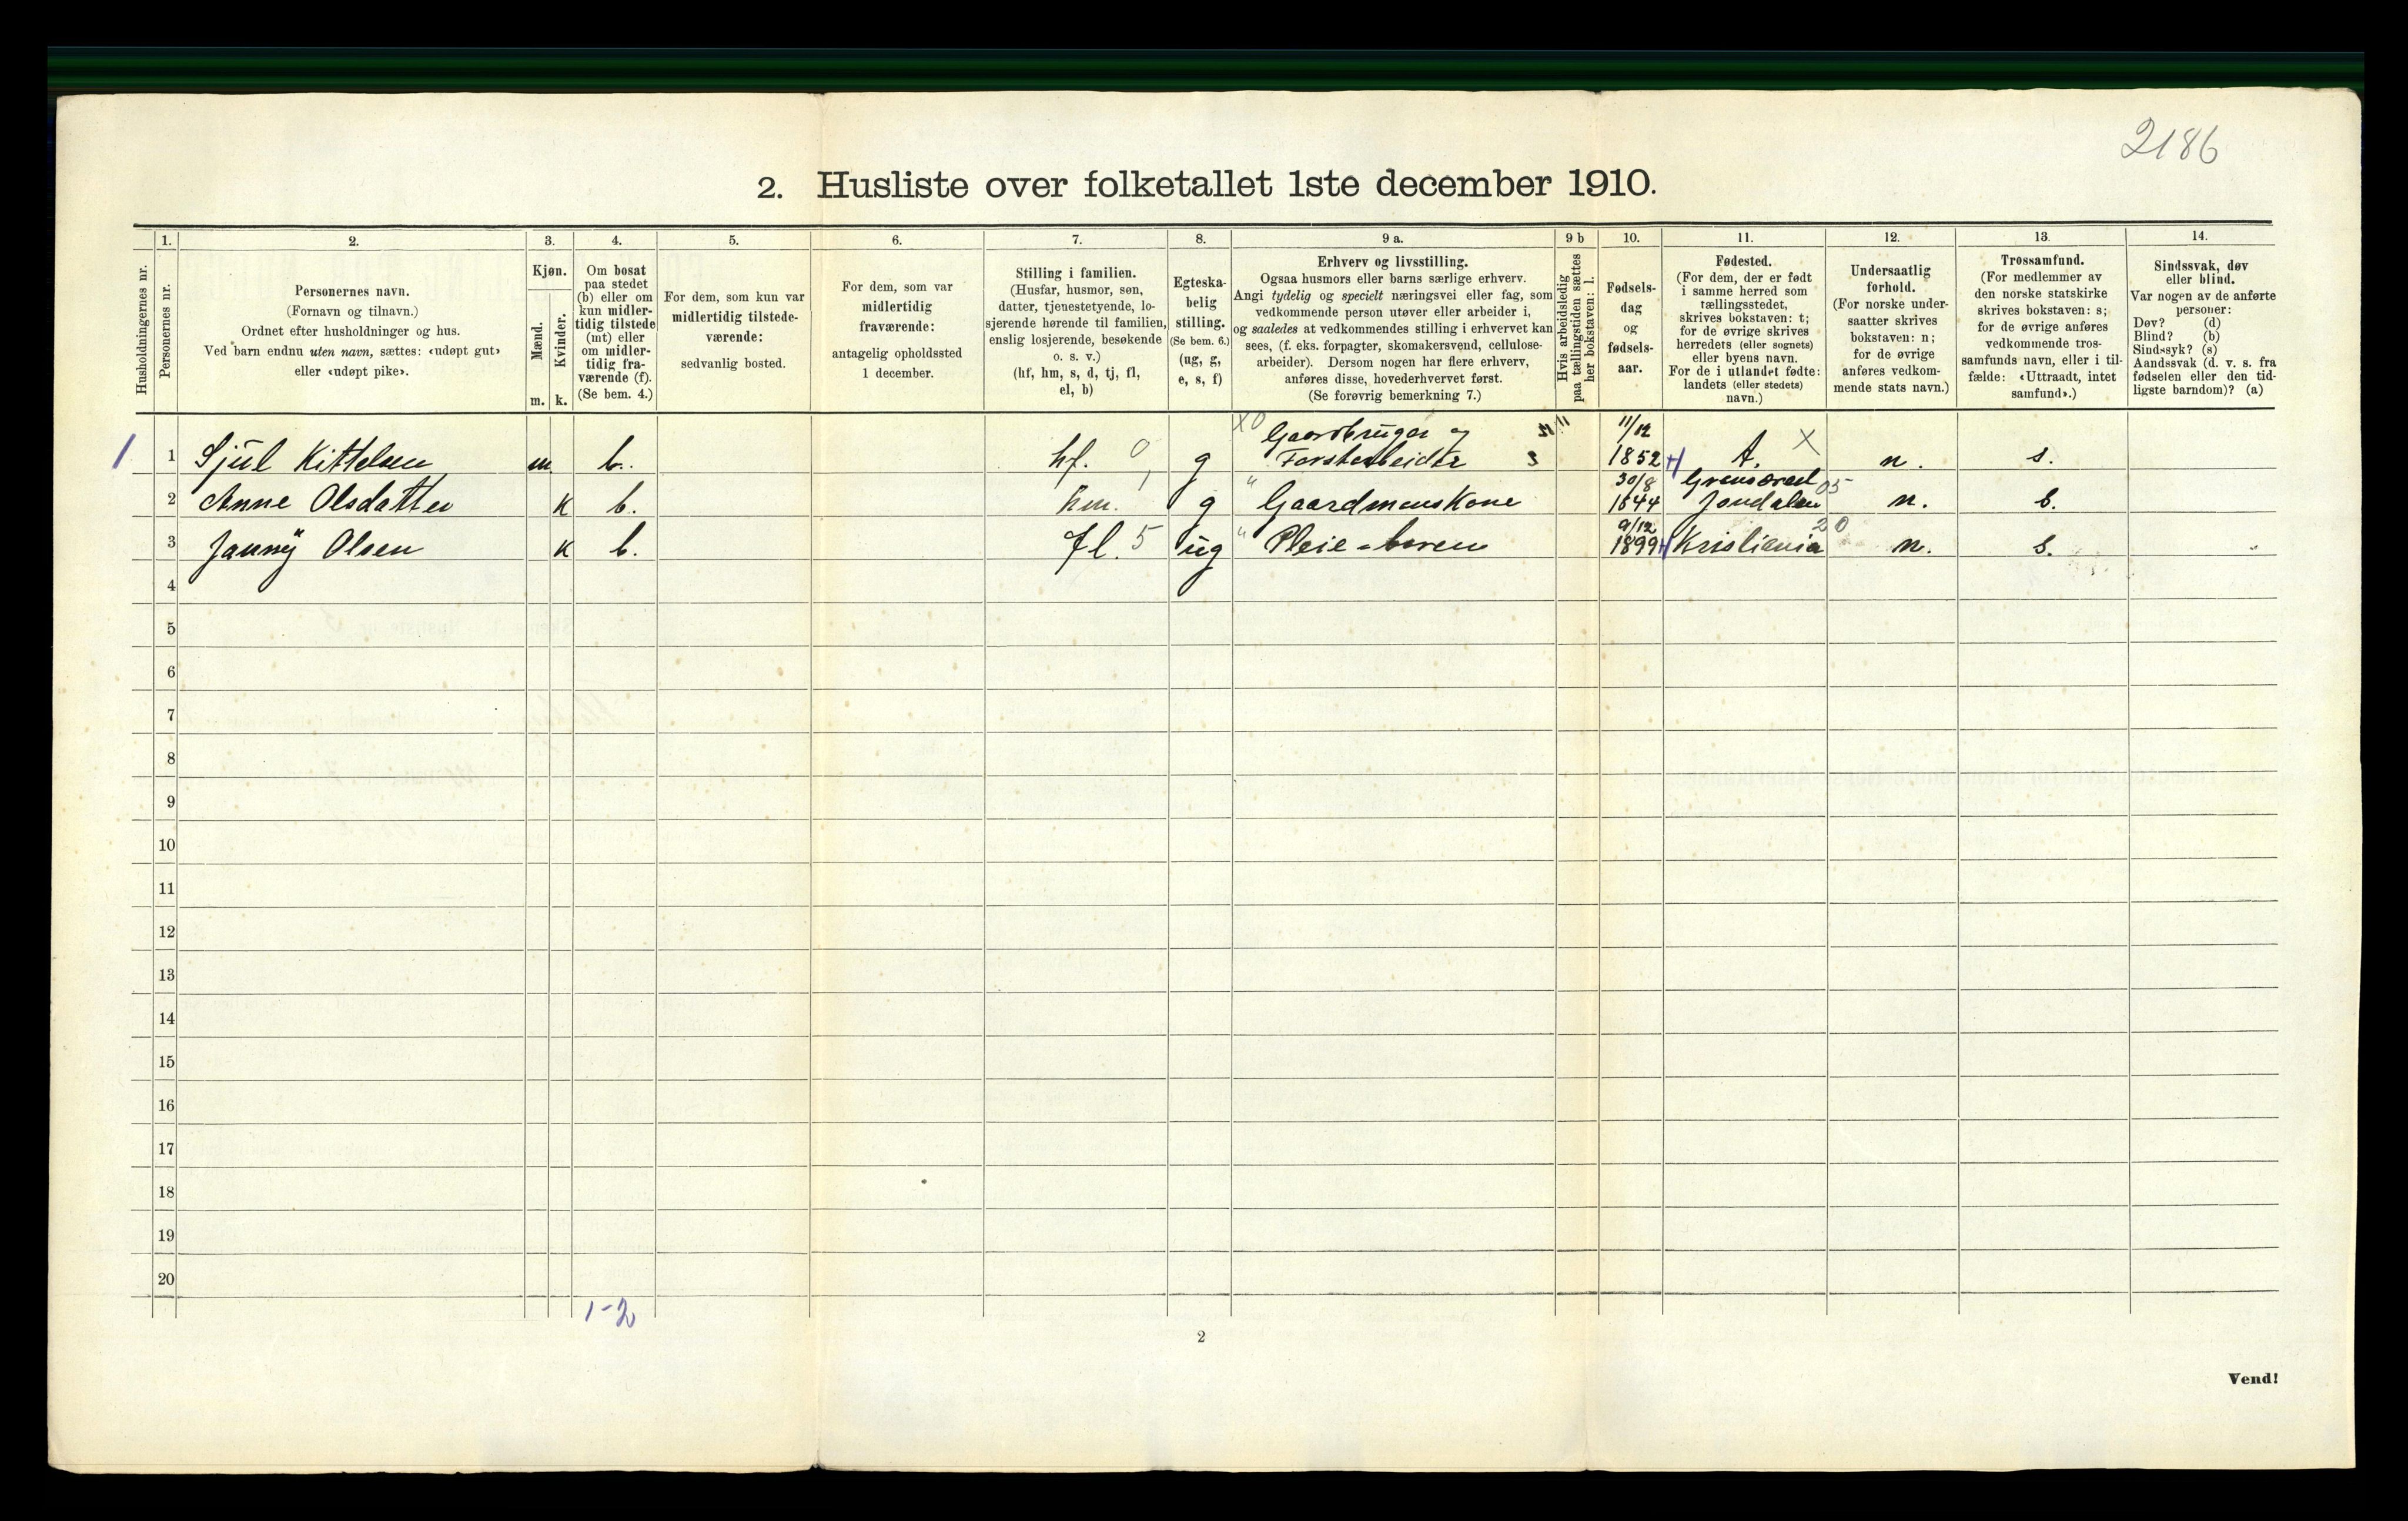 2186
2. Husliste over folketallet 1ste december 1910.
Husholdningernes nr.
1.
Personernes nr.
2.
Personernes navn.
(Fornavn og tilnavn.)
Ordnet efter husholdninger og hus.
Ved barn endnu uten navn, sættes: «udøpt gut»
eller «udøpt pike».
3.
Kjøn.
Mænd.
Kvinder.
m. k.
4.
Om bosat
paa stedet
(b) eller om
kun midler-
tidig tilstede
(mt) eller
om midler-
tidig fra-
værende (f).
(Se bem. 4.)
5.
For dem, som kun var
midlertidig tilstede-
værende:
sedvanlig bosted.
6.
For dem, som var
midlertidig
fraværende:
antagelig opholdssted
1 december.
7.
Stilling i familien.
(Husfar, husmor, søn,
datter, tjenestetyende, lo-
sjerende hørende til familien,
enslig losjerende, besøkende
o. s. v.)
(hf, hm, s, d, tj, fl,
el, b)
8.
Egteska-
belig
stilling.
(Se bem. 6.)
(ug, g,
e, s, f)
9 a.
Erhverv og livsstilling.
Ogsaa husmors eller barns særlige erhverv.
Angi tydelig og specielt næringsvei eller fag, som
vedkommende person utøver eller arbeider i,
og saaledes at vedkommendes stilling i erhvervet kan
sees, (f. eks. forpagter, skomakersvend, cellulose-
arbeider). Dersom nogen har flere erhverv,
anføres disse, hovederhvervet først.
(Se forøvrig bemerkning 7.)
9 b
Hvis arbeidsledig
paa tællingstiden sættes
her bokstaven: l.
10.
Fødsels-
dag
og
fødsels-
aar.
11.
Fødested.
(For dem, der er født
i samme herred som
tællingsstedet,
skrives bokstaven: t;
for de øvrige skrives
herredets (eller sognets)
eller byens navn.
For de i utlandet fødte:
landets (eller stedets)
navn.)
12.
Undersaatlig
forhold.
(For norske under-
saatter skrives
bokstaven: n;
for de øvrige
anføres vedkom-
mende stats navn.)
13.
Trossamfund.
(For medlemmer av
den norske statskirke
skrives bokstaven: s;
for de øvrige anføres
vedkommende tros-
samfunds navn, eller i til-
fælde: «Uttraadt, intet
samfund».)
14.
Sindssvak, døv
eller blind.
Var nogen av de anførte
personer:
Døv? (d)
Blind? (b)
Sindssyk? (s)
Aandssvak (d. v. s. fra
fødselen eller den tid-
ligste barndom)? (a)
X0 Gaardbruger og 11/12
1 1 Sjul Kittelsen m b. hf. 0 g Forstarbeider 1852 t. X n. s.
30/8
2 Anne Olsdatter k b. hm. 1 g " Gaardmanskone 1844 Jondalen 05 n. s.
9/12 20
3 Janny Olsen k b. fl. 5 ug " Pleie-baren 1899 Kristiania n. s.
4
5
6
7
8
9
10
11
12
13
14
15
16
17
18
19
20
1-2
2
Vend!